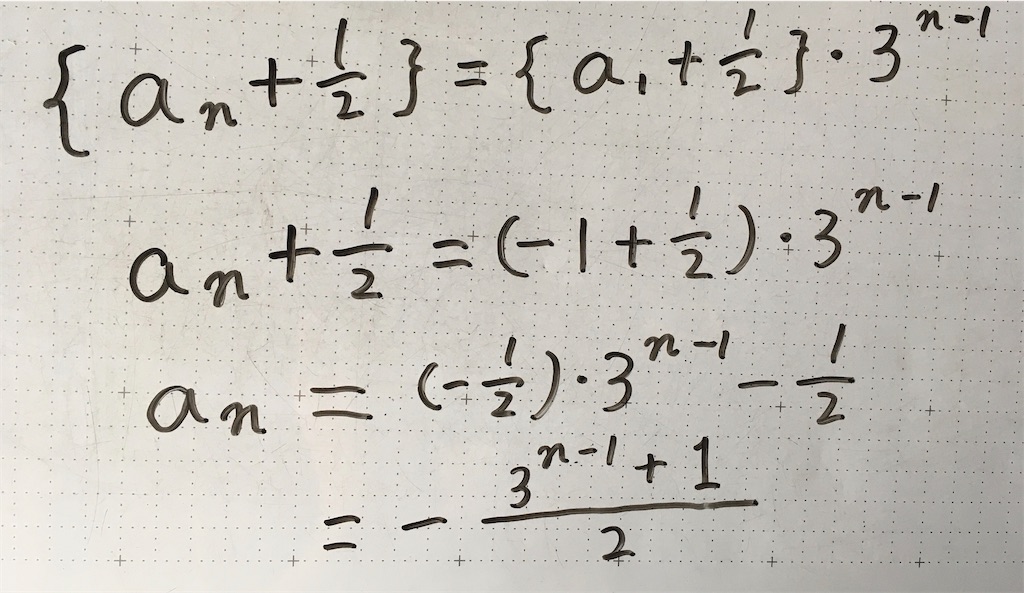 { aₙ + 1/2 } = { a₁ + 1/2 } · 3ⁿ⁻¹
aₙ + 1/2 = (-1 + 1/2) · 3ⁿ⁻¹
aₙ = (-1/2) · 3ⁿ⁻¹ - 1/2
= - (3ⁿ⁻¹ + 1)/2